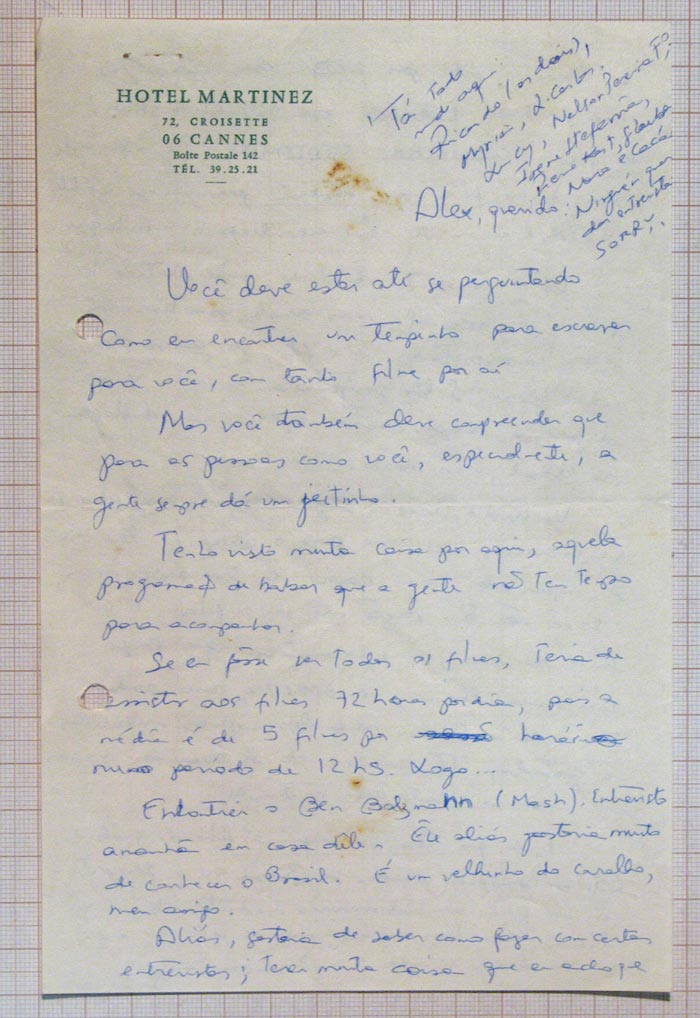 HOTEL MARTINEZ
72, CROISETTE
06 CANNES
Boîte Postale 142
TÉL. 39.25.21
Tá todo
mundo aqui:
Ricardo (os dois),
Myriam, L. Carlos,
Lucy, Nelson Pereira
Irene Stefania,
Glauber
Nara e Cacá.
Ninguém quer
dar entrevista
SORRY.
Alex, querido:
Você deve estar até se perguntando
como eu encontrei um tempinho para escrever
para você, com tanto filme por aí
Mas você também deve compreender que
para as pessoas como você, especialmente, a
gente sempre dá um jeitinho.
Tenho visto muita coisa por aqui, aquela
programação de babar que a gente não tem tempo
para acompanhar.
Se eu fôsse ver todos os filmes, teria de
assistir aos filmes 72 horas por dia, pois a
média é de 5 filmes por horário
num período de 12 hs. Logo...
Encontrei o Ben (Mash). Entrevisto
amanhã em casa dêle. Êle aliás gostaria muito
de conhecer o Brasil. É um velhinho do caralho,
meu amigo.
Aliás, gostaria de saber como fazer com certas
entrevistas; tem muita coisa que eu acho que